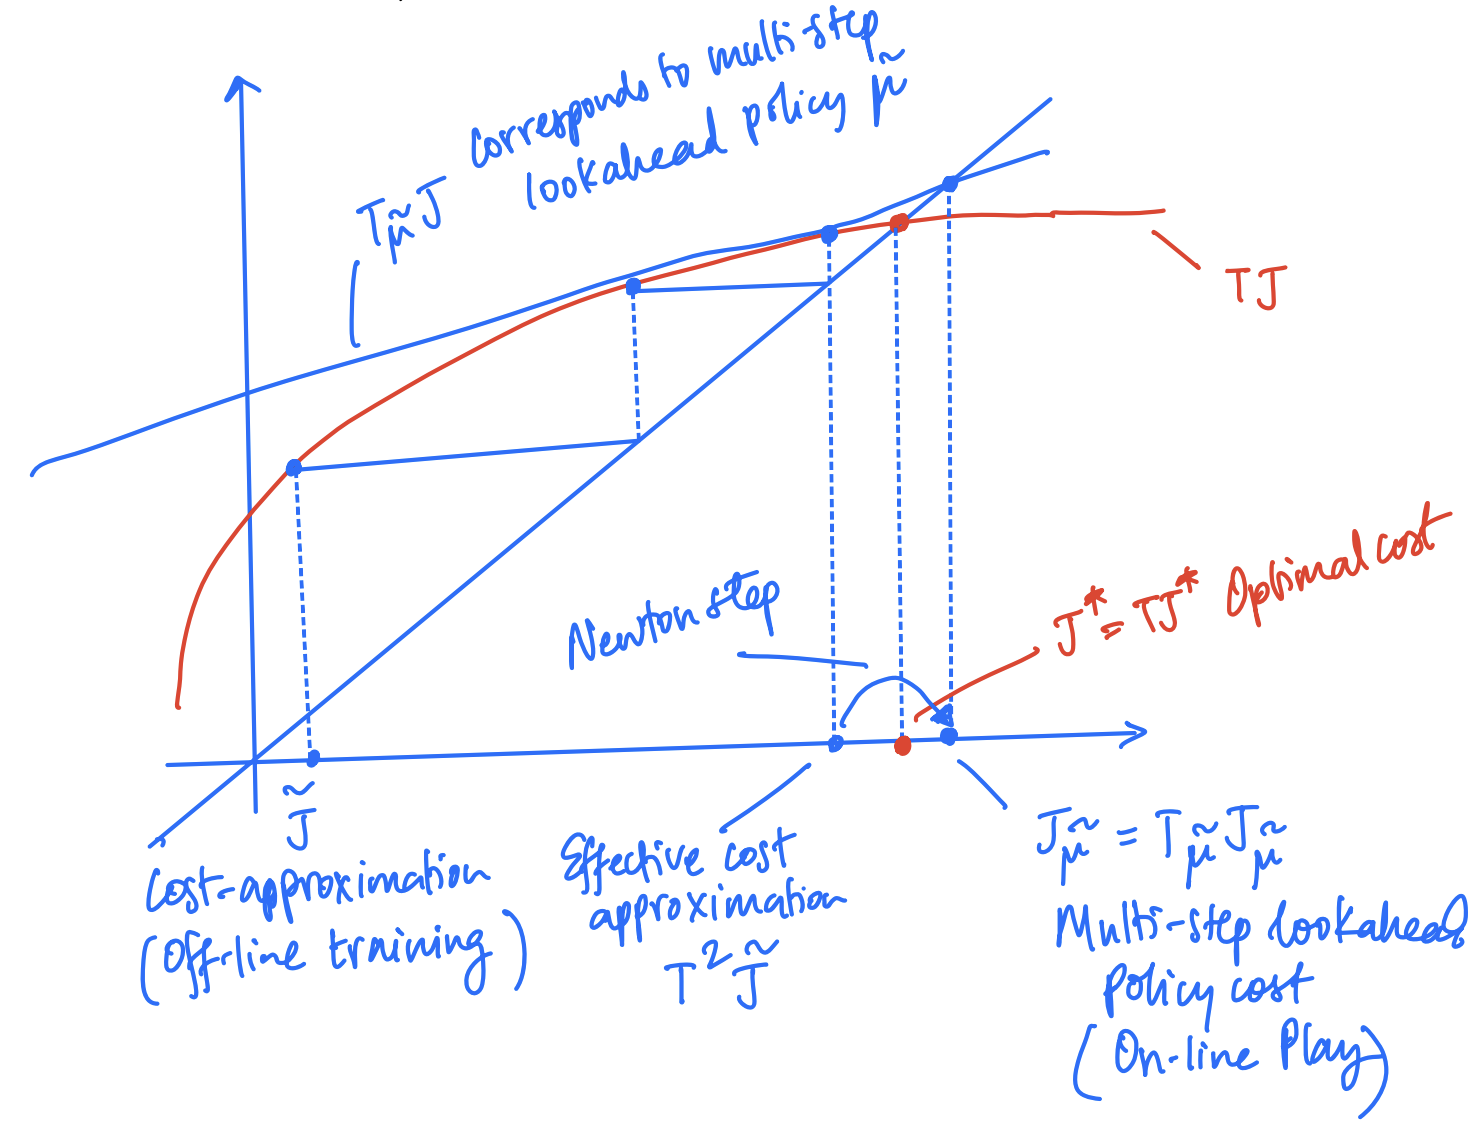 Corresponds to multistep
lookahead policy μ̃
T_μ̃ J
TJ
Newton step
J* = TJ* Optimal cost
J̃
Cost-approximation
(Off-line training)
Effective cost
approximation
T² J̃
J_μ̃ = T_μ̃ J_μ̃
Multi-step lookahead
policy cost
(On-line Play)